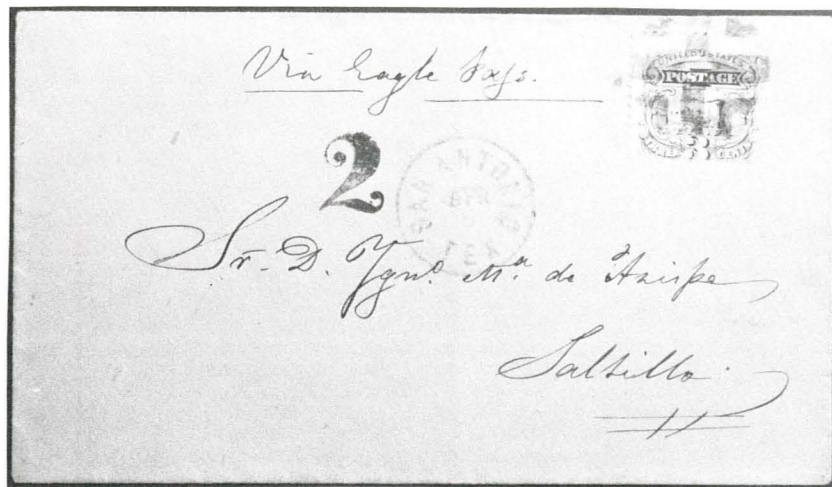 Via Eagle Pass.
UNITED STATES
POSTAGE
2
SAN ANTONIO
TEX
3
Sr. D. Ygno. Ma. de Aizpe
Saltillo.